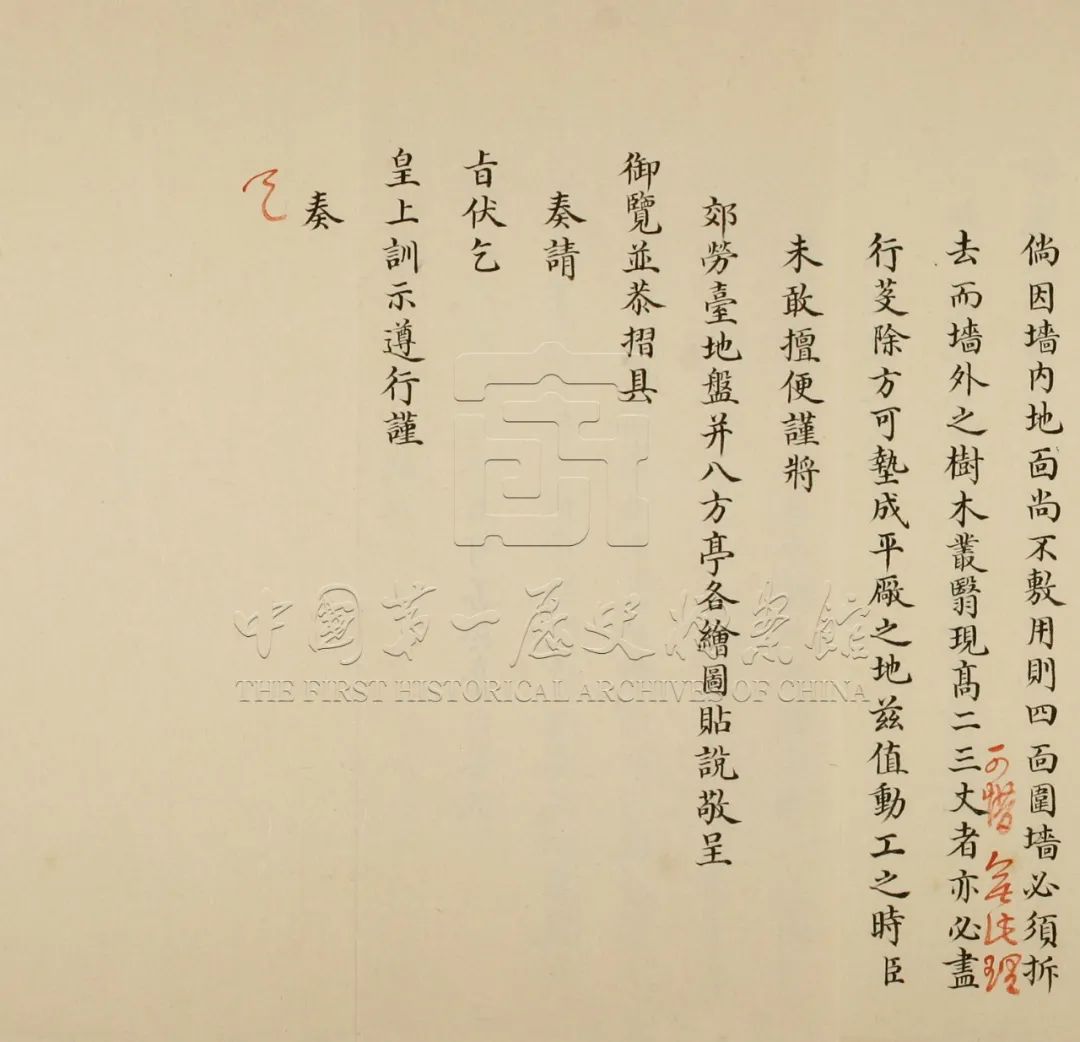 倘因墻内地面尚不敷用則四面圍墻必須拆
可 無 理
去而墻外之樹木叢翳現髙二三丈者亦必盡
行芟除方可墊成平厰之地兹值動工之時臣
未敢擅便謹將
郊勞臺地盤并八方亭各繪圖貼說敬呈
御覽並恭摺具
奏請
旨伏乞
皇上訓示遵行謹
奏
覽
中國第一歷史檔案館
THE FIRST HISTORICAL ARCHIVES OF CHINA